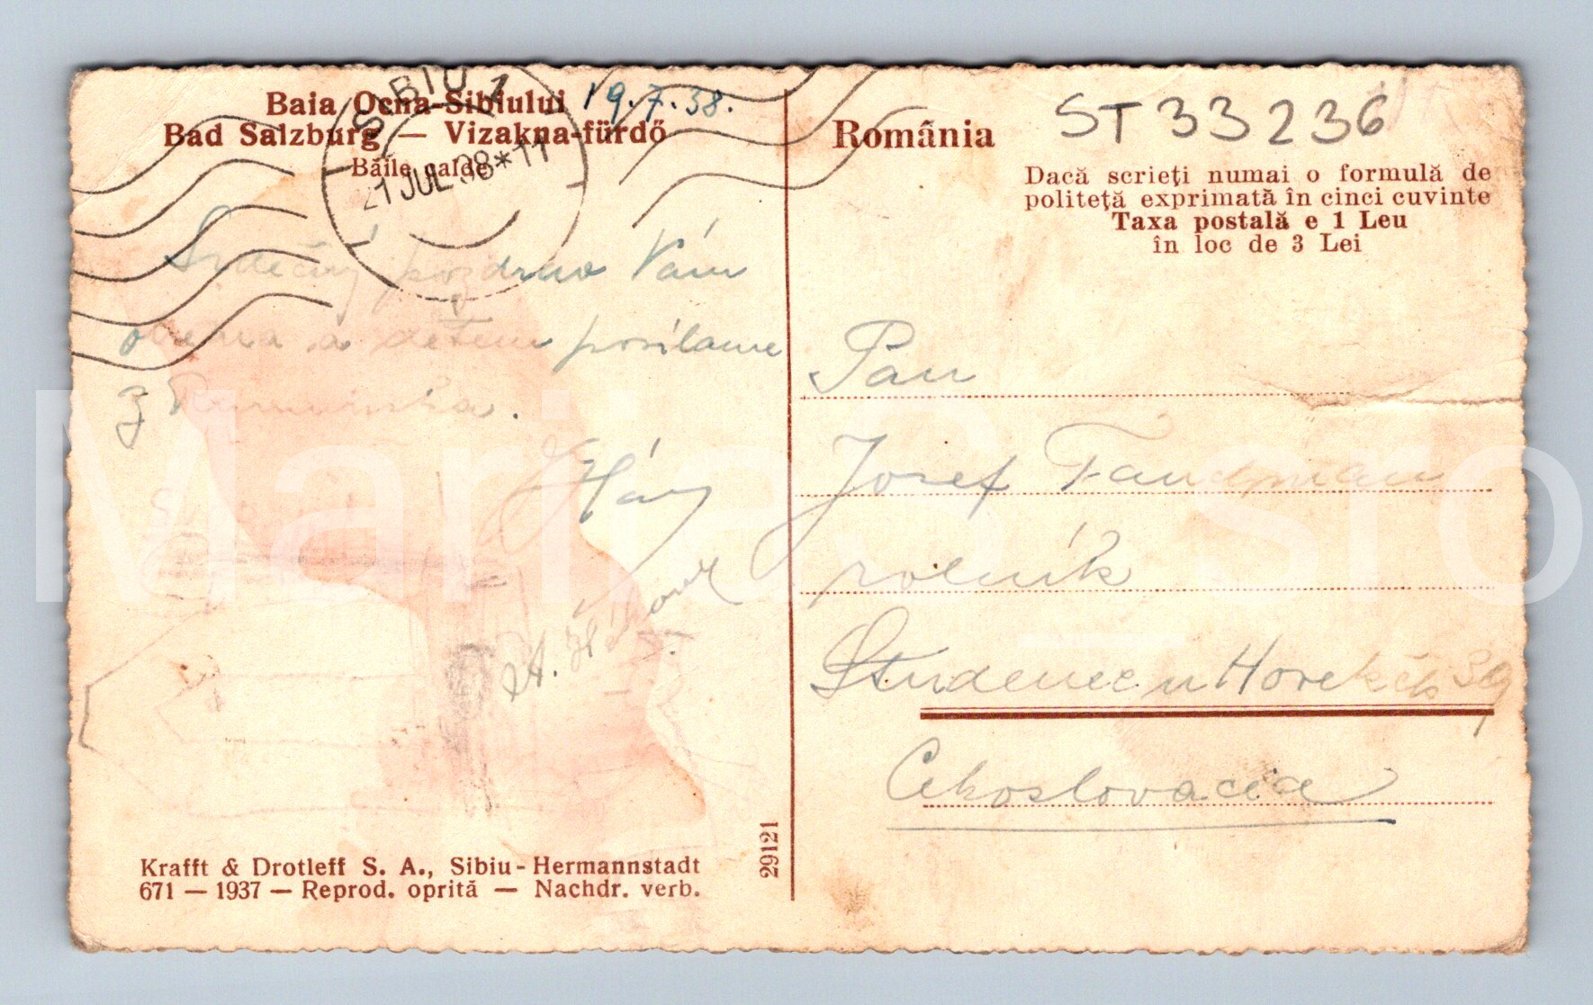 Baia Ocna-Sibiului 19.7.38.
Bad Salzburg — Vizakna-fürdő
Băile calde
SIBIU 1
21 JUL 38 * 11
Srdečný pozdrav Vám
oběma a dětem posíláme
z Rumunska.
România
ST 33236
Dacă scrieți numai o formulă de
politeță exprimată în cinci cuvinte
Taxa postală e 1 Leu
în loc de 3 Lei
Pan
Josef
rolník
Studenec u Horek čís 39
Cekoslovacia
29121
Krafft & Drotleff S. A., Sibiu-Hermannstadt
671 — 1937 — Reprod. oprită — Nachdr. verb.